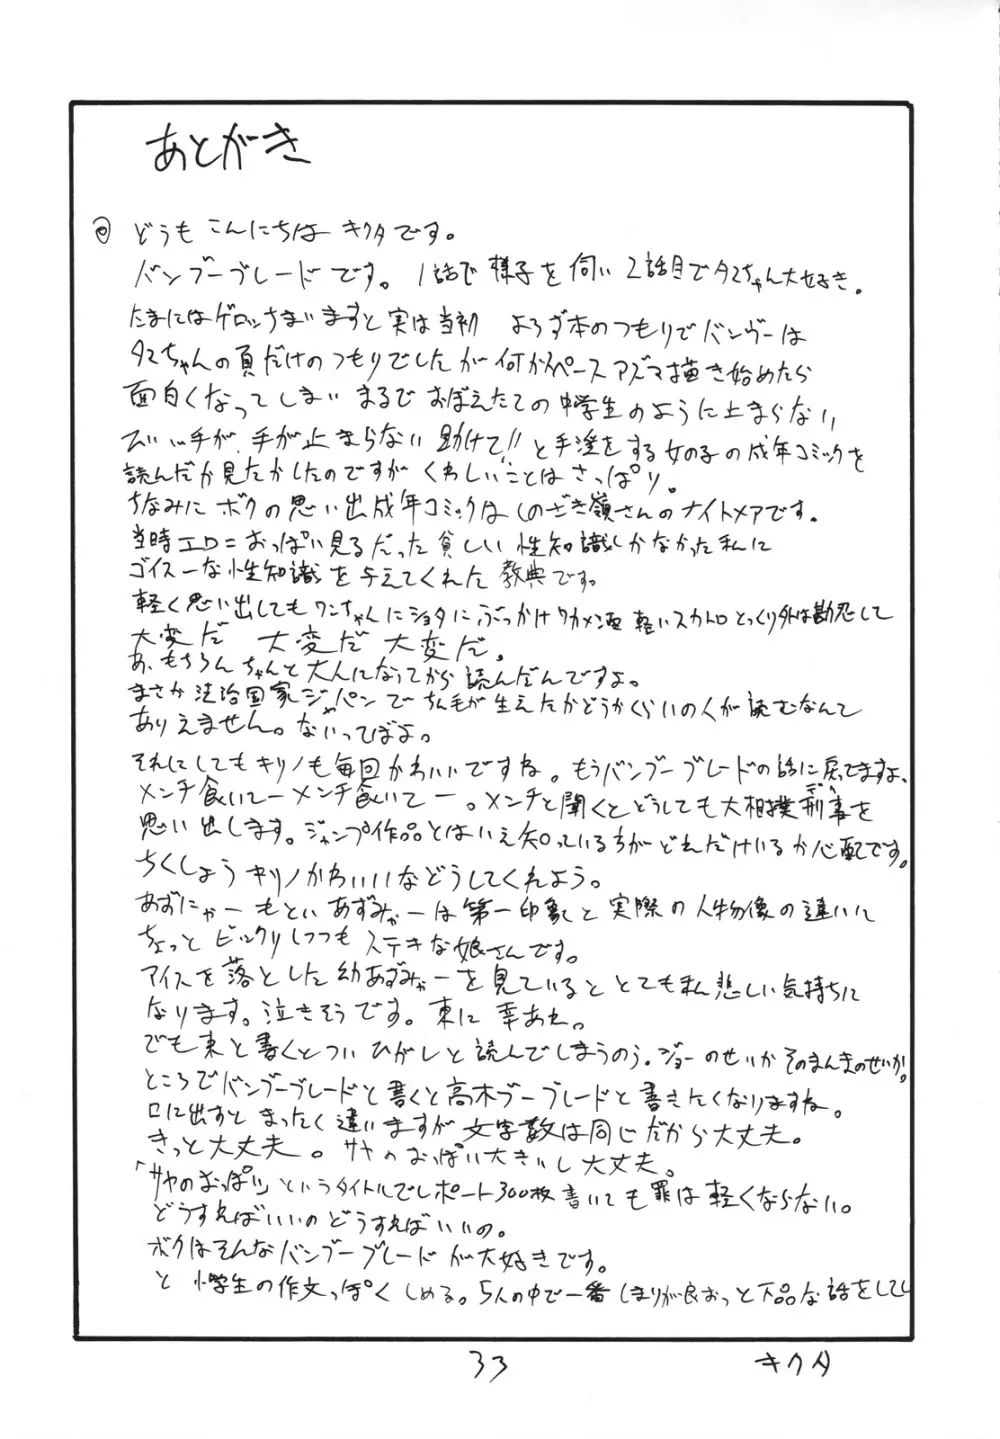 あとがき
どうも こんにちは キクタです。
バンブーブレードです。1話で様子を伺い2話目でタマちゃん大好き。
たまにはゲロッさまいますと実は当初 よろず本のつもりでバンブーは
タマちゃんの頁だけのつもりでしたが何か アズマ描き始めたら
面白くなってしまい まるで おぼえたての中学生のように止まらない
手が 手が止まらない 助けて!! と手淫をする女の子の成年コミックを
読んだか見たかしたのですが くわしいことは さっぱり。
ちなみに ボクの思い出成年コミックはしのざき嶺さんのナイトメアです。
当時エロ=おっぱい見るだった貧しい 性知識しかなかった私に
ゴイスーな性知識を与えてくれた 教典です。
軽く思い出しても ワンちゃんにショタに ぶっかけ ワカメ酒 軽いスカトロ とっくり外は勘忍して
大変だ 大変だ 大変だ。
あ、もちろん ちゃんと大人になってから 読んだんですよ。
まさか 法治国家ジャパンで ちん毛が生えたかどうかくらいの人が読むなんて
ありえません。ないってばよ。
それにしても キリノも毎回かわいいですね。もうバンブーブレードの話に戻ってますよ、
メンチ食いてー メンチ食いてー。メンチと聞くとどうしても大相撲刑事を
思い出します。ジャンプ作品とはいえ知っている方がどれだけいるか心配です。
ちくしょう キリノかわいいなどうしてくれよう。
あずにゃー もとい あずみゃーは 第一印象と 実際の人物像の違いに
ちょっと ビックリしつつも ステキな娘さんです。
アイスを落とした幼あずみゃーを見ていると とても私悲しい気持ちに
なります。泣きそうです。東に 幸あれ。
でも東と書くとつい ひがしと読んでしまうのう。ジョーのせいか そのまんまのせいか。
ところでバンブーブレードと書くと高木ブーブレードと書きたくなりますね。
口に出すと まったく違いますが文字数は同じだから大丈夫。
きっと大丈夫。サヤのおっぱい大きいし大丈夫。
「サヤのおっぱい」というタイトルでレポート300枚書いても罪は軽くならない。
どうすればいいの どうすればいいの。
ボクはそんなバンブーブレードが大好きです。
と 小学生の作文っぽく しめる。5人の中で一番しまりが良おっと下品な話をして
33
キクタ